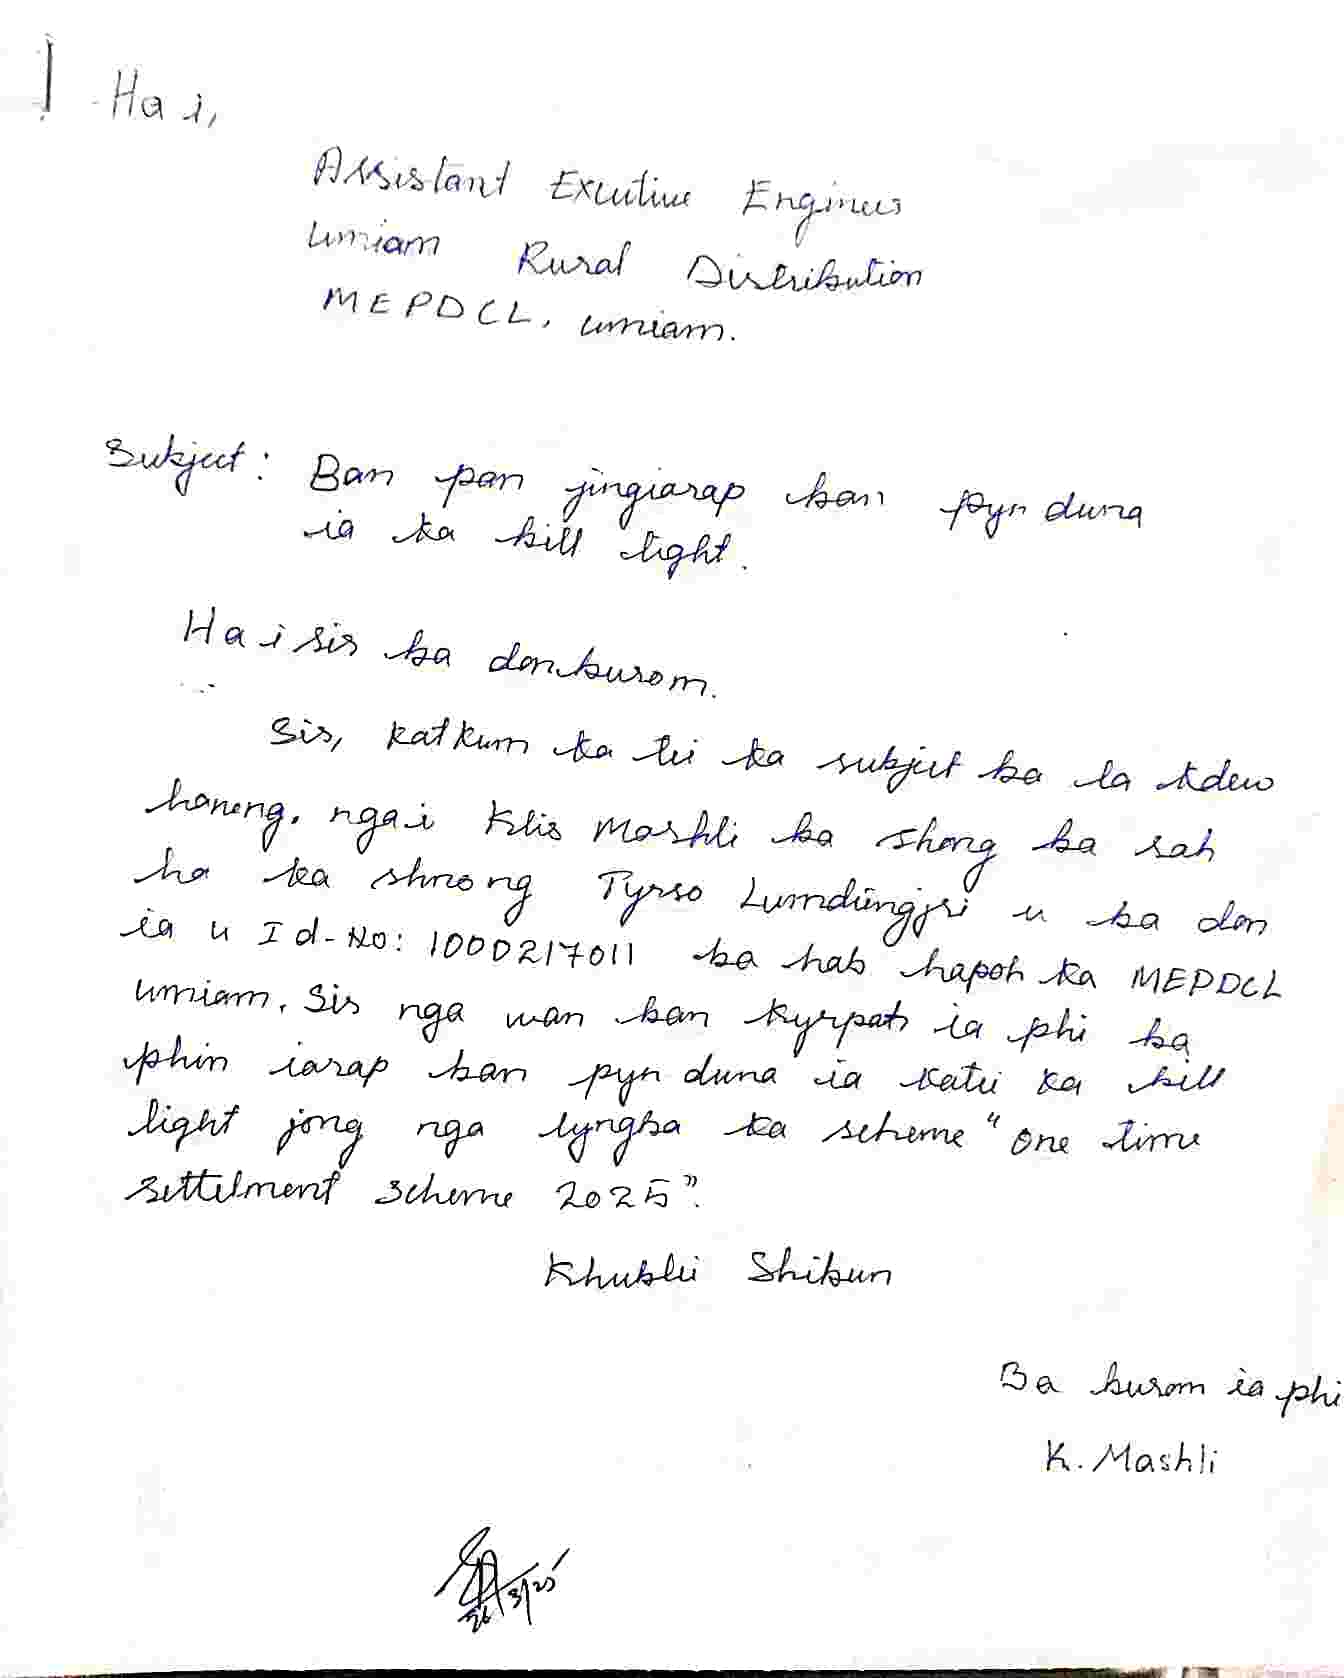 Ha i,
Assistant Excutive Engineer
umiam Rural Distribution
MEPDCL, umiam.
Subject: Ban pan jingiarap ban pyn duna
ia ka bill light.
Ha i sir ba donburom.
Sir, katkum ka tei ka subject ba la kdew
haneng. nga i Klis Mashli ba shong ba sah
ha ka shnong Tyrso Lumdiengjri u ba don
ia u Id-No: 1000217011 ba hab hapoh ka MEPDCL
umiam. Sir nga wan ban kyrpah ia phi ba
phin iarap ban pyn duna ia katei ka bill
light jong nga lyngba ka scheme "one time
settelment scheme 2025".
Khublei Shibun
Ba burom ia phi
K. Mashli
26/3/25